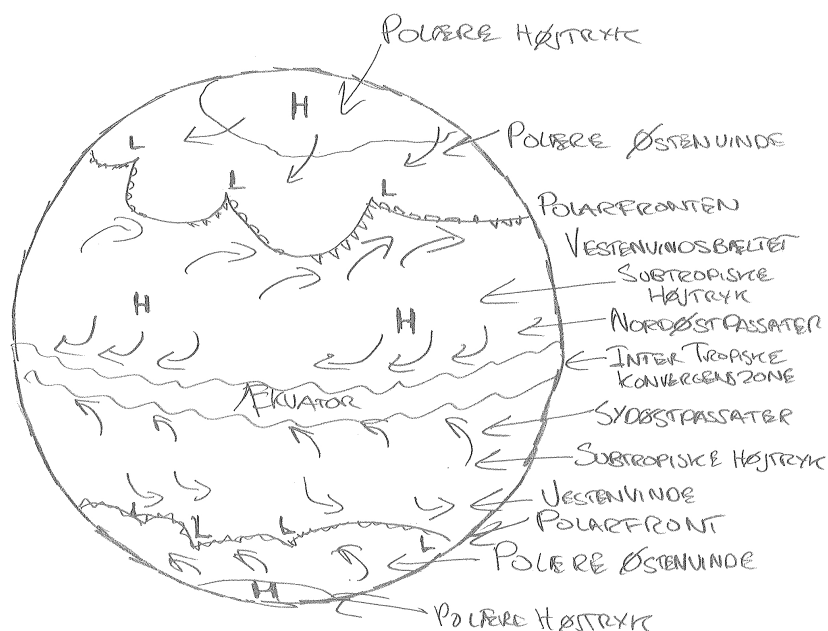 POLÆRE HØJTRYK
H
POLÆRE ØSTENVINDE
L
L
L
POLARFRONTEN
VESTENVINDSBÆLTET
SUBTROPISKE
HØJTRYK
H
H
NORDØSTPASSATER
INTER TROPISKE
KONVERGENSZONE
ÆKVATOR
SYDØSTPASSATER
SUBTROPISKE HØJTRYK
VESTENVINDE
L
L
L
POLARFRONT
L
POLÆRE ØSTENVINDE
H
POLÆRE HØJTRYK